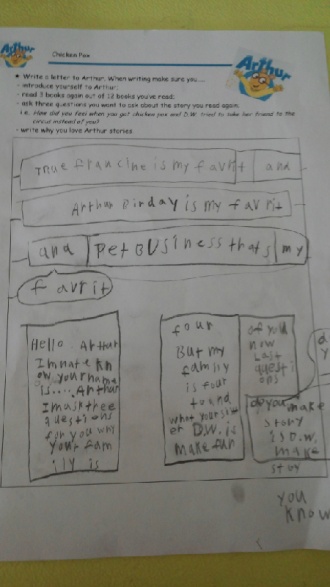 Arthur
Chicken Pox
Arthur
• Write a letter to Arthur. When writing make sure you....
- introduce yourself to Arthur;
- read 3 books again out of 12 books you've read;
- ask three questions you want to ask about the story you read again;
i.e. How did you feel when you got chicken pox and D.W. tried to take her friend to the circus instead of you?
- write why you love Arthur stories
True francine is my favrit and
Arthur Birday is my favrit
and Pet BUSiness thats my
favrit
Hello Arthur
Im nate kn
ow your name
is..... Arthur
Im ask three
questions
for you why
Your fam
ily is
four
But my
family
is four
to and
what your sist
er D.W. is
make fun
of you
now
Last
questi
ons
do you make
story
is D.W.
make
stoy
d
y
you
know